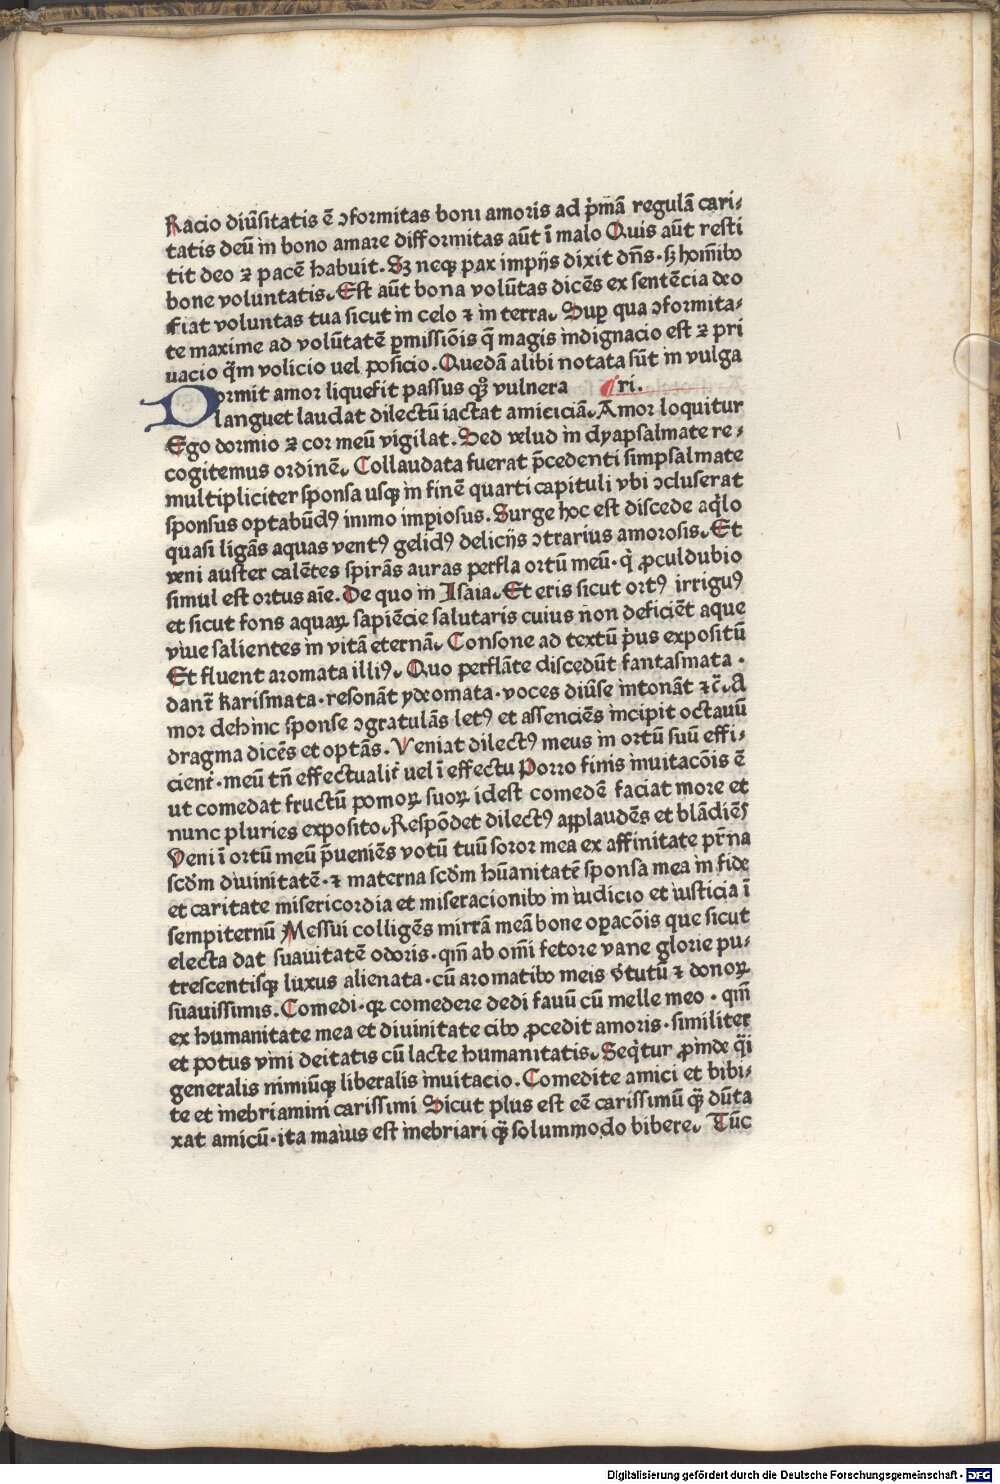 Racio diūſitatis ē ↄformitas boni amoris ad pͥmā regulā cari-
tatis deū in bono amare difformitas aūt ī malo Quis aūt reſti
tit deo ⁊ pacē habuit. Sꝫ neqꝫ pax impijs dixit dn̄s. ſꝫ homībꝫ
bone voluntatis. Eſt aūt bona volūtas dicēs ex ſentēcia deo
fiat voluntas tua ſicut in celo ⁊ in terra. Suꝑ qua ↄformita-
te maxime ad volūtatē ꝑmiſſiōis q̄ magis indignacio eſt ⁊ pri
uacio q̄m volicio uel poſicio. Quedā alibi notata ſūt in vulga
Dormit amor liquefit paſſus qꝫ vulnera ¶ri.
languet laudat dilectū iactat amiciciā. Amor loquitur
Ego dormio ⁊ cor meū vigilat. Sed velud in dyapſalmate re-
cogitemus ordinē. Collaudata fuerat p̄cedenti ſimpſalmate
multipliciter ſponſa uſqꝫ in finē quarti capituli vbi ↄcluſerat
ſponſus optabūdꝰ immo imꝑioſus. Surge hoc eſt diſcede aqͥlo
quaſi ligās aquas ventꝰ gelidꝰ delicijs ↄtrarius amoroſis. Et
veni auſter calētes ſpirās auras perfla ortū meū. qͥ ꝓculdubio
ſimul eſt ortus aīe. De quo in Iſaia. Et eris ſicut ortꝰ irriguꝰ
et ſicut fons aquaꝝ ſapiēcie ſalutaris cuius non deficiēt aque
viue ſalientes in vitā eternā. Conſone ad textū pͥus expoſitū
Et fluent aromata illiꝰ. Quo perflāte diſcedūt fantaſmata.
dant̄ kariſmata. reſonāt ydeomata. voces diūſe intonāt ⁊c̄. A
mor dehinc ſponſe ↄgratulās letꝰ et aſſenciēs incipit octauū
dragma dicēs et optās. Veniat dilectꝰ meus in ortū ſuū effi-
cient̄. meū tn̄ effectualit̄ uel ī effectu Porro finis inuitacōis ē
ut comedat fructū pomoꝝ ſuoꝝ ideſt comedē faciat more et
nunc pluries expoſito. Reſpōdet dilectꝰ applaudēs et blādiēs
Veni ī ortū meū p̄ueniēs votū tuū ſoror mea ex affinitate pr̄na
ſcd̄m diuinitatē. ⁊ materna ſcd̄m hūanitatē ſponſa mea in fide
et caritate miſericordia et miſeracionibꝫ in iudicio et iuſticia ī
ſempiternū Meſſui colligēs mirrā meā bone oꝑacōis que ſicut
electa dat ſuauitatē odoris. qm̄ ab omī fetore vane glorie pu-
treſcentiſqꝫ luxus alienata. cū aromatibꝫ meis v̄tutū ⁊ donoꝝ
ſuauiſſimis. Comedi. qꝛ comedere dedi fauū cū melle meo. qm̄
ex humanitate mea et diuinitate cibꝫ ꝓcedit amoris. ſimiliter
et potus vini deitatis cū lacte humanitatis. Seqͥtur ꝓinde qͣi
generalis nimiūqꝫ liberalis inuitacio. Comedite amici et bibi-
te et inebriamini cariſſimi Sicut plus eſt eē cariſſimū qͣꝫ dūta
xat amicū. ita maius eſt inebriari qͣꝫ ſolummodo bibere. Tūc
Digitalisierung gefördert durch die Deutsche Forschungsgemeinschaft - DFG